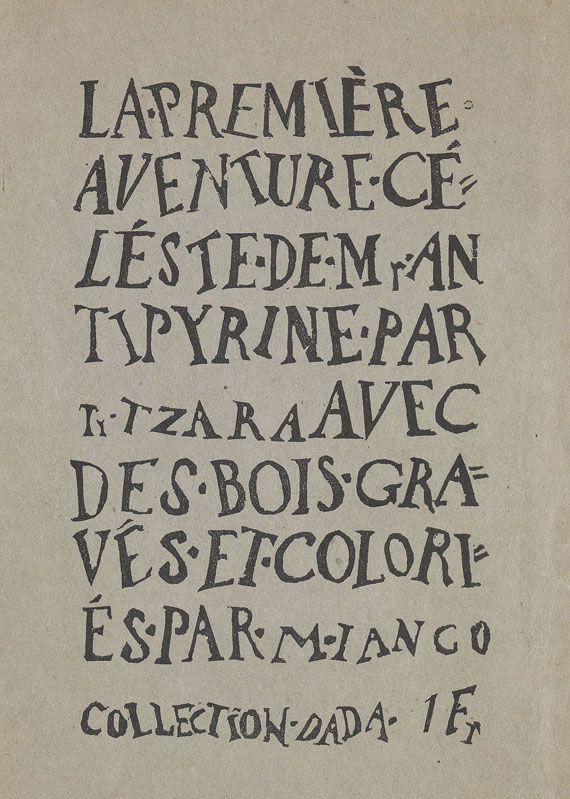 LA·PREMIÈRE·
AVENTURE·CÉ=
LÉSTE·DE·Mr·AN
TIPYRINE·PAR
Tr·TZARA AVEC
DES·BOIS·GRA=
VÉS·ET·COLORI=
ÉS·PAR·M·IANCO
COLLECTION·DADA· 1 Fr